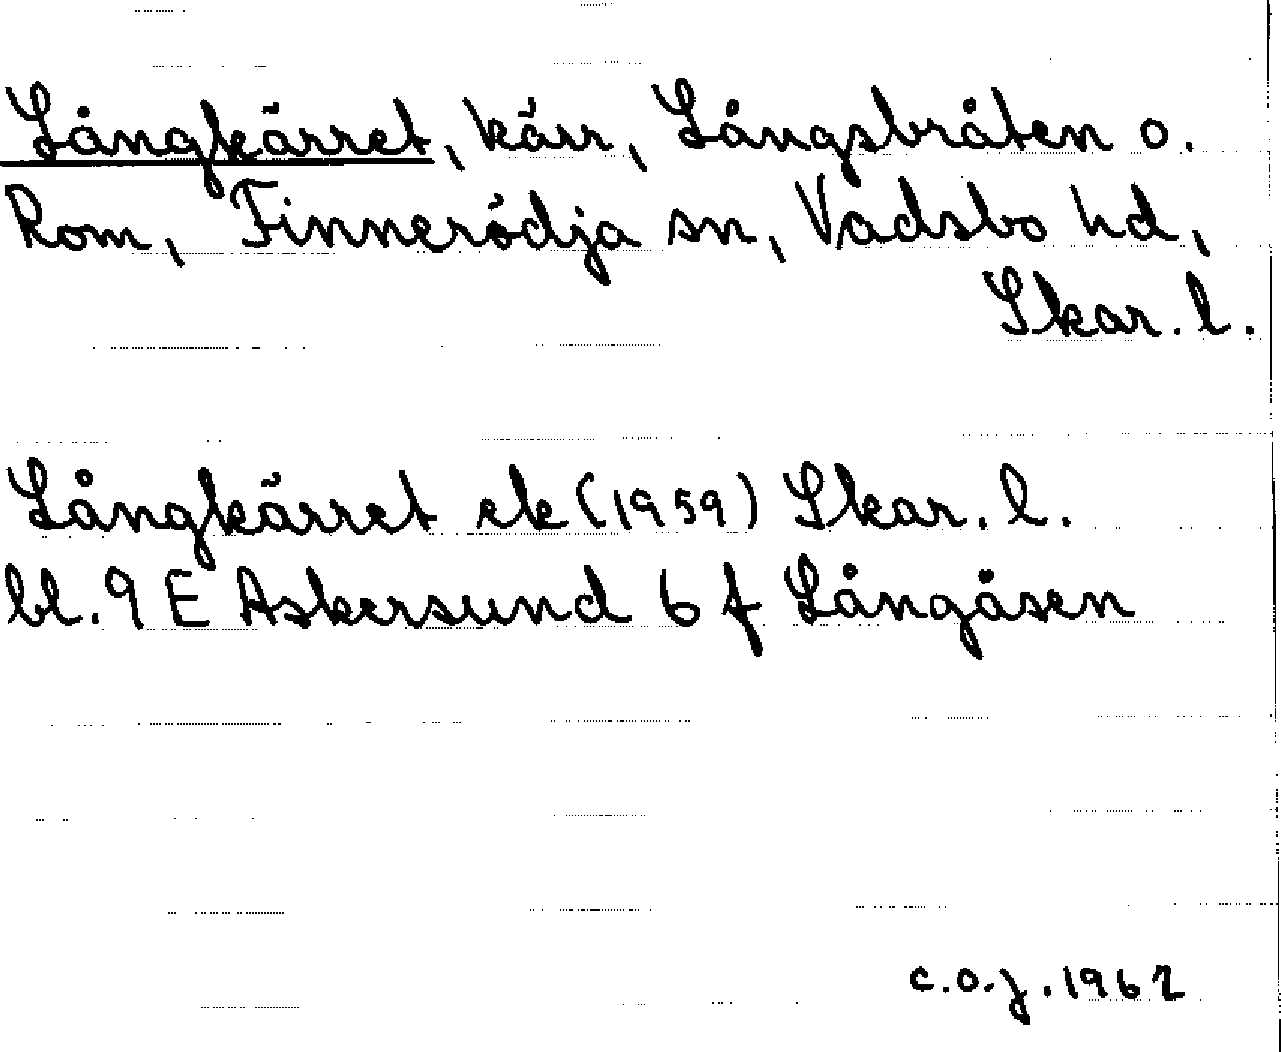 Långkärret, kärr, Långsbråten o.
Rom, Finnerödja sn, Vadsbo hd,
Skar. l.
Långkärret ek (1959) Skar. l.
bl. 9 E Askersund 6 f Långåsen
C.O.J. 1962